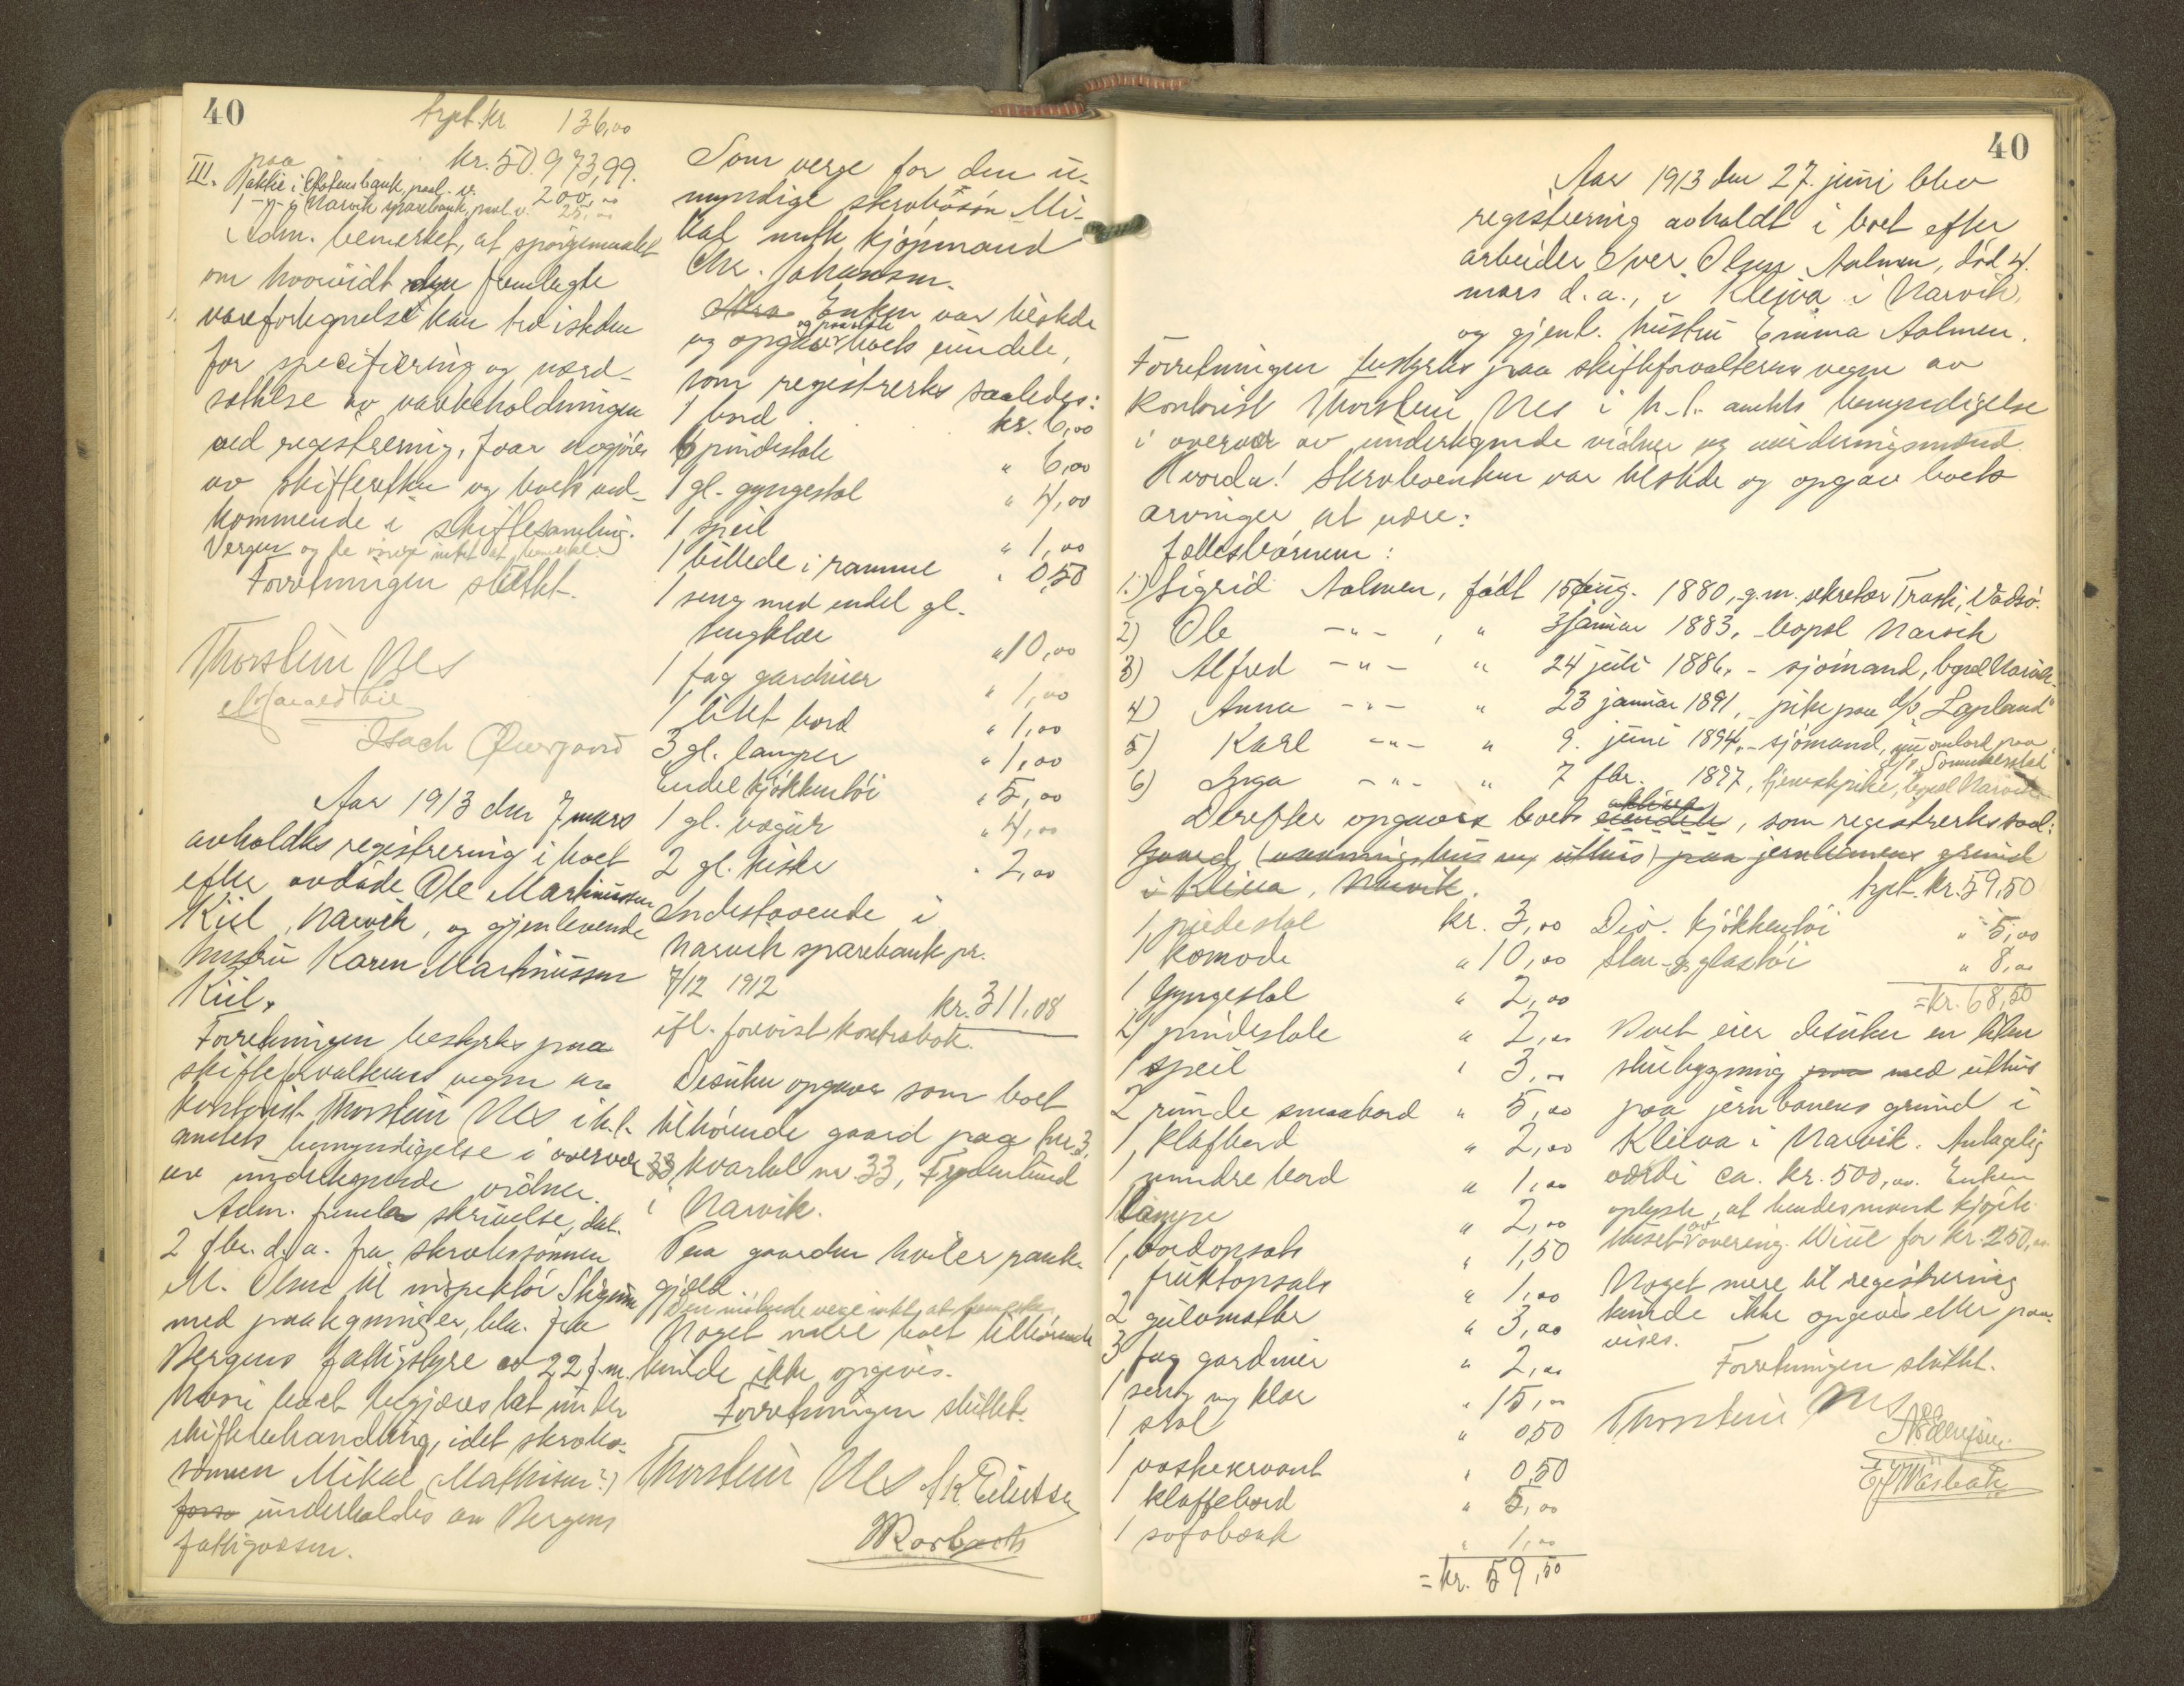 40
Trpt. kr. 136,00
kr. 50.973,99.
III. paa
1 aktie i Ofotens bank, paal. v. 200,00
1 -"- i Narvik sparebank, paal. v. 25,00
Adm. bemerket, at spørgsmaalet
om hvorvidt den fremlagte
varefortegnelse kan tre isteden
for specificering og værd-
sættelse av varebeholdningen
ved registrering, faar avgjøres
av skifteretten og boets ved-
kommende i skiftesamling.
Vergen og de øvrige intet at bemerke.
Forretningen sluttet.
Thorstein Nes
Harald Lie
Isach Overgaard
Aar 1913 den 7 mars
avholdtes registrering i boet
efter avdøde Ole Martinussen
Kiil, Narvik, og gjenlevende
hustru Karen Martinussen
Kiil.
Forretningen bestyrtes paa
skifteforvalterens vegne av
kontorist Thorstein Nes i h.t.
amtets bemyndigelse i overvær
av undertegnede vidner.
Adm. fremla skrivelse, dat.
2 fbr. d. a. fra skrubssønnen
M. Olsen til inspektør
med paategninger, bla. fra
Bergens fattigstyre av 22 f.m.
hvori boet begjæres tat under
skiftebehandling, idet skrubs-
sønnen Mikal (Mathisen?)
underholdes av Bergens
fattigvæsen.
Som verge for den u-
myndige skrubssøn Mi-
kal møtte kjøpmand
Chr. Johansen.
Enken var tilstede
og opgav og paaviste boets eiendele,
som registrertes saaledes:
1 bord kr. 6,00
6 pindestole " 6,00
1 gl. gyngestol " 4,00
1 speil " 1,00
1 billede i ramme " 0,50
1 seng med endel gl.
sengklær " 10,00
1 fag gardiner " 1,00
1 litet bord " 1,00
3 gl. lamper " 1,00
Endel kjøkkentøi " 5,00
1 gl. vægur " 4,00
2 gl. kister " 2,00
Indestaaende i
Narvik sparebank pr.
7/12 1912 kr. 311,08
ifl. forevist kontrabok.
Desuten opgaves som boet
tilhørende gaard paa br. 3,
33 kvartal nr. 33, Frydenlund
i Narvik.
Paa gaarden hviler pante-
gjæld.
Den møtende verge intet at bemerke.
Noget mere boet tilhørende
kunde ikke opgives.
Forretningen sluttet.
Thorstein Nes
40
Aar 1913 den 27. juni blev
registrering avholdt i boet efter
arbeider Iver Olsen Aalmen, død 4.
mars d. a., i Kleiva i Narvik,
og gjenl. hustru Emma Aalmen.
Forretningen bestyrtes paa skifteforvalterens vegne av
kontorist Thorstein Nes i h.t. amtets bemyndigelse
i overvær av undertegnede vidner og vurderingsmænd.
Hvorda! Skrubenken var tilstede og opgav boets
arvinger at være:
Fællesbørnene:
1.) Sigrid Aalmen, født 15 aug. 1880, g.m. sekretær Trasti, Vadsø.
2) Ole -"- , " 3 januar 1883, - bopæl Narvik
3) Alfred -"- " 24 juli 1886, - sjømand, bopæl Narvik
4) Anna -"- " 23 januar 1891, - pike paa D/S "Lapland"
5) Karl -"- " 9. juni 1894, - sjømand, nu ombord paa
6) Inga -"- " 7 fbr. 1897, tjenestepike, bopæl Narvik
Derefter opgaves boets aktiva eiendele, som registrertes saal:
Gaard (vaaningshus og uthus) paa jernbanens grund
i Kleiva, Narvik.
1 pidestal kr. 3,00
1 komode " 10,00
1 gyngestol " 2,00
2 pindestole " 2,00
1 speil " 3,00
2 runde smaabord " 5,00
1 klafbord " 2,00
1 mindre bord " 1,00
1 lampe " 2,00
1 bordopsats " 1,50
1 fruktopsats " 1,00
2 gulvmatter " 3,00
3 fag gardiner " 2,00
1 seng og klær " 15,00
1 stol " 0,50
1 vaskeservant " 0,50
1 klaffebord " 5,00
1 sofabænk " 1,00
= kr. 59,50
Trpt. kr. 59,50
Div. kjøkkentøi " 5,00
Sten- og glastøi " 8,00
= kr. 68,50
Boet eier desuten en liten
stuebygning paa med uthus
paa jernbanens grund i
Kleiva i Narvik. Antagelig
værdi ca. kr. 500,00. Enken
oplyste, at hendes mand kjøpte
huset av for kr. 250,00
Noget mere til registrering
kunde ikke opgives eller paa-
vises.
Forretningen sluttet.
Thorstein Nes